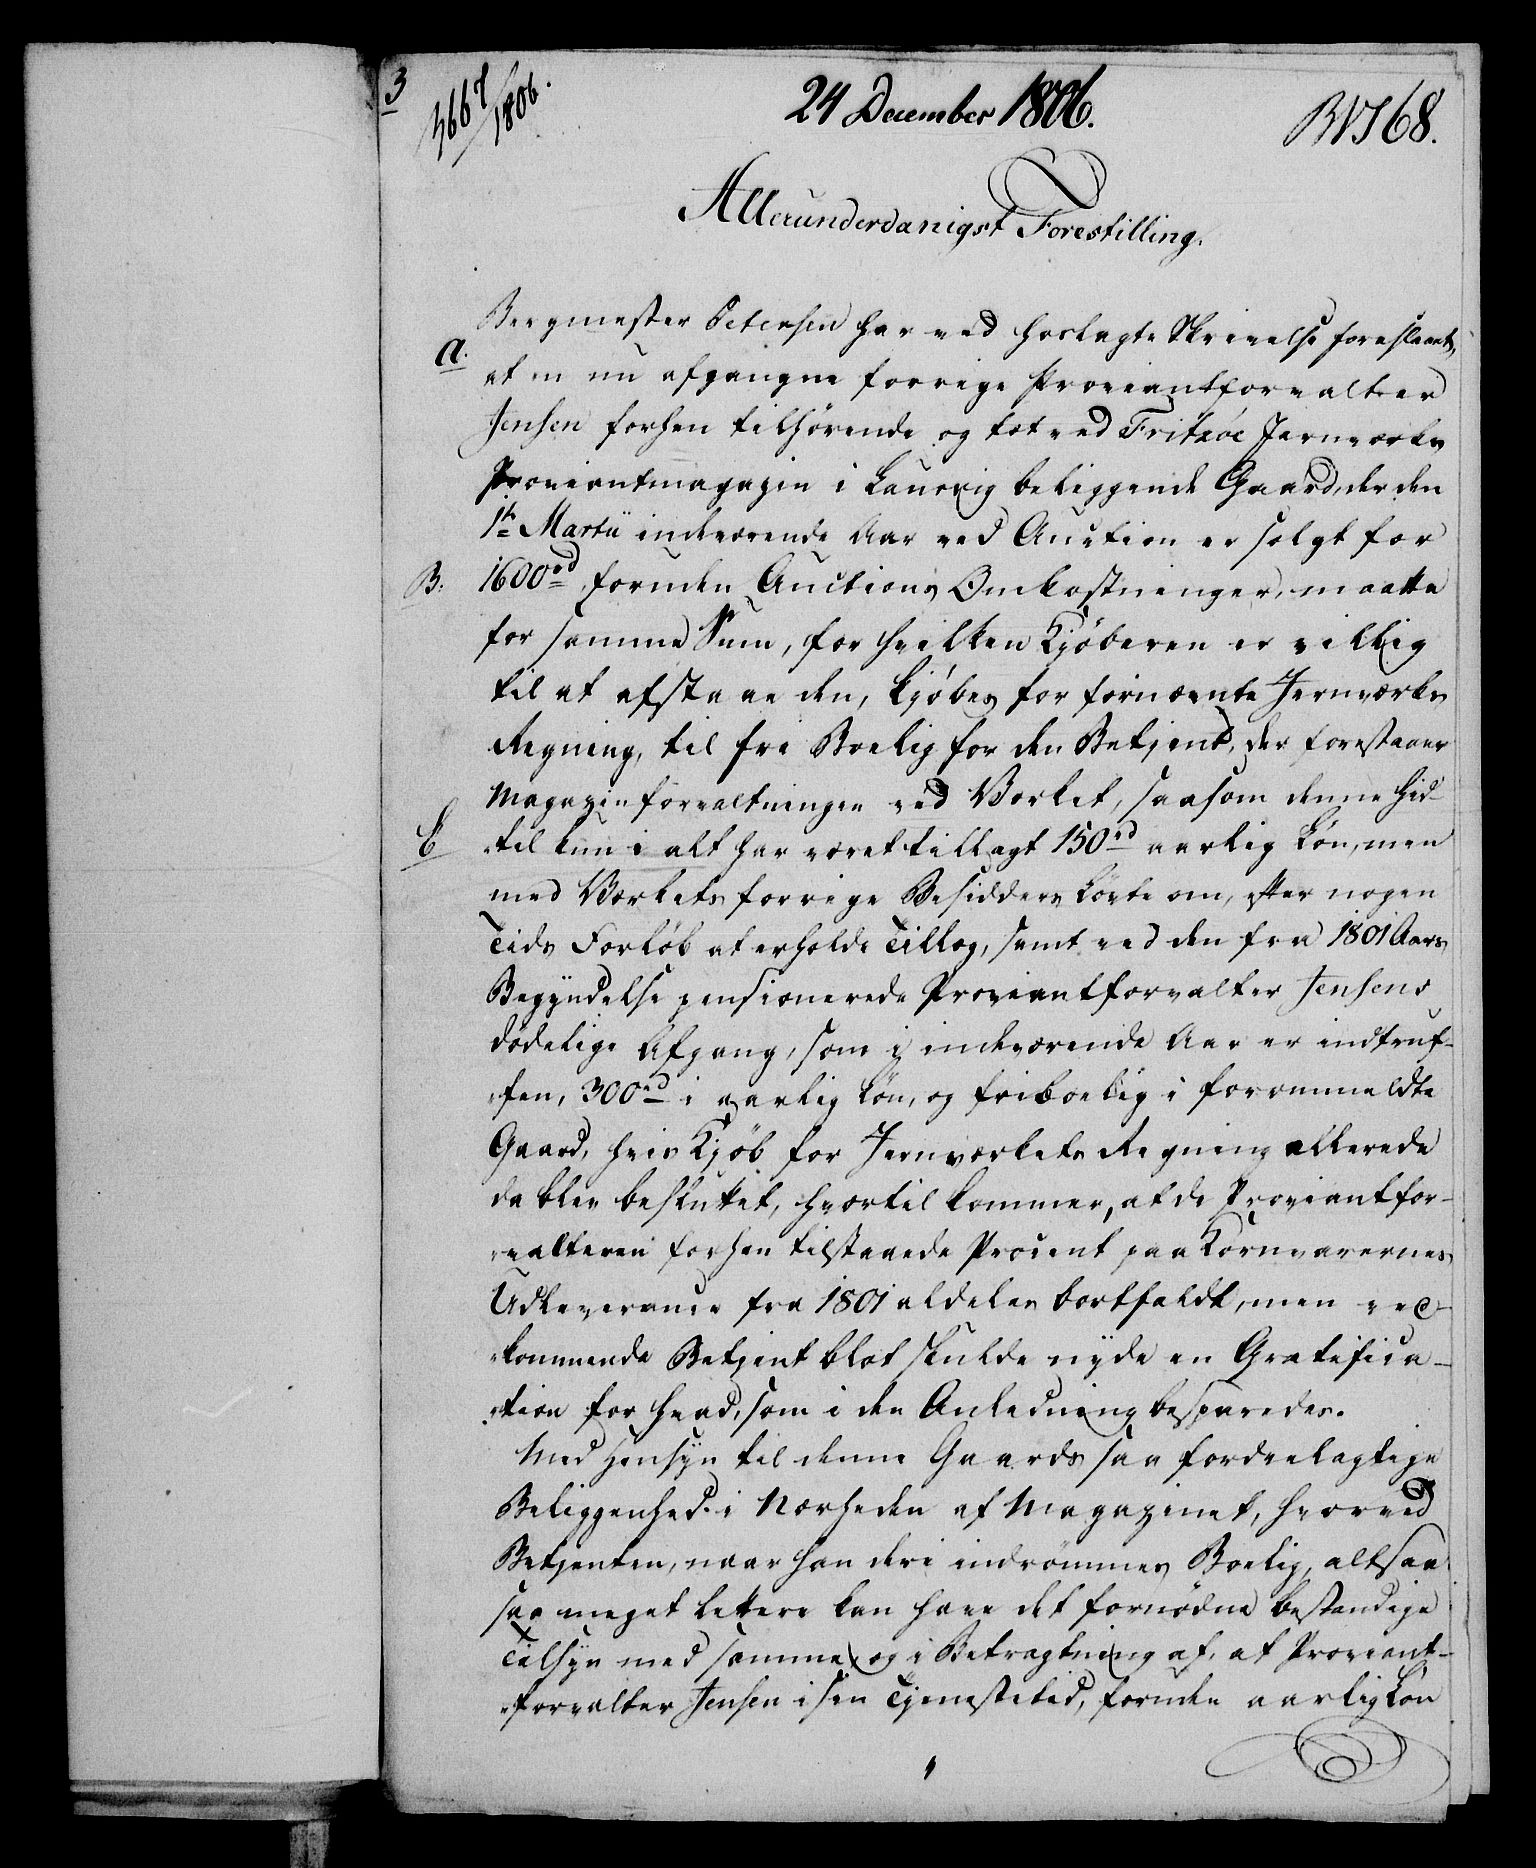 3
3667/1806.
24 December 1806.
BN 168.
Allerunderdanigst Forestilling.
Bergmester Petersen har ved hoslagte Skrivelse foreslaaet,
a.
at en nu afgangne forrige Proviantforvalter
Jensen forhen tilhørende og tæt ved Fritzöe Jernværks
Proviantmagazin i Laurvig beliggende Gaard, der den
1te Martii indeværende Aar ved Auction er solgt for
B.
1600rd foruden Auctions Omkostninger, maatte
for samme Sum, for hvilken Kjøberen er villig
til at afstaae den, kjøbes for fornævnte Jernværks
Regning, til fri Boelig for den Betjent, der forestaaer
Magazinforvaltningen ved Værket, saasom denne hid-
C
til kun i alt har været tillagt 150rd aarlig Løn, men
med Værkets forrige Besidders Løvte om, efter nogen
Tids Forløb at erholde Tillæg, samt ved den fra 1801 Aars
Begyndelse pensionerede Proviantforvalter Jensens
dødelige Afgang, som i indeværende Aar er indtruf-
fen, 300rd i aarlig Løn, og frieboelig i forommeldte
Gaard, hvis Kjøb for Jernværkets Regning allerede
da blev besluttet, hvortil kommer, at de Proviantfor-
valteren forhen tilstaaede Procent paa Kornvarernes
Udleverance fra 1801 aldeles bortfaldt, men ved-
kommende Betjent blot skulde nyde en Gratifica-
tion for hvad, som i den Anledning besparedes.
Med Hensyn til denne Gaards saa fordeelagtige
Beliggenhed i Nærheden af Magazinet, hvorved
Betjenten, naar han deri indrømmes Boelig, altsaa
saa meget lettere kan have det fornødne bestandige
Tilsyn med samme, og i Betragtning af, at Proviant-
forvalter Jensen i sin Tjenestetid, foruden aarlig Løn